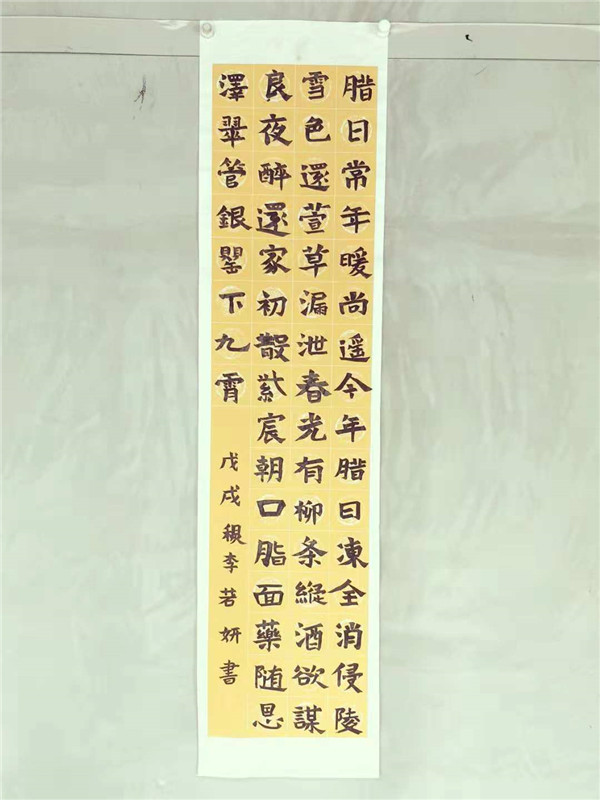 腊日常年暖尚遥今年腊日凍全消侵陵
雪色還萱草漏泄春光有柳条縱酒欲謀
良夜醉還家初散紫宸朝口脂面藥随恩
澤翠管銀罌下九霄
戊戌穐李若妍書